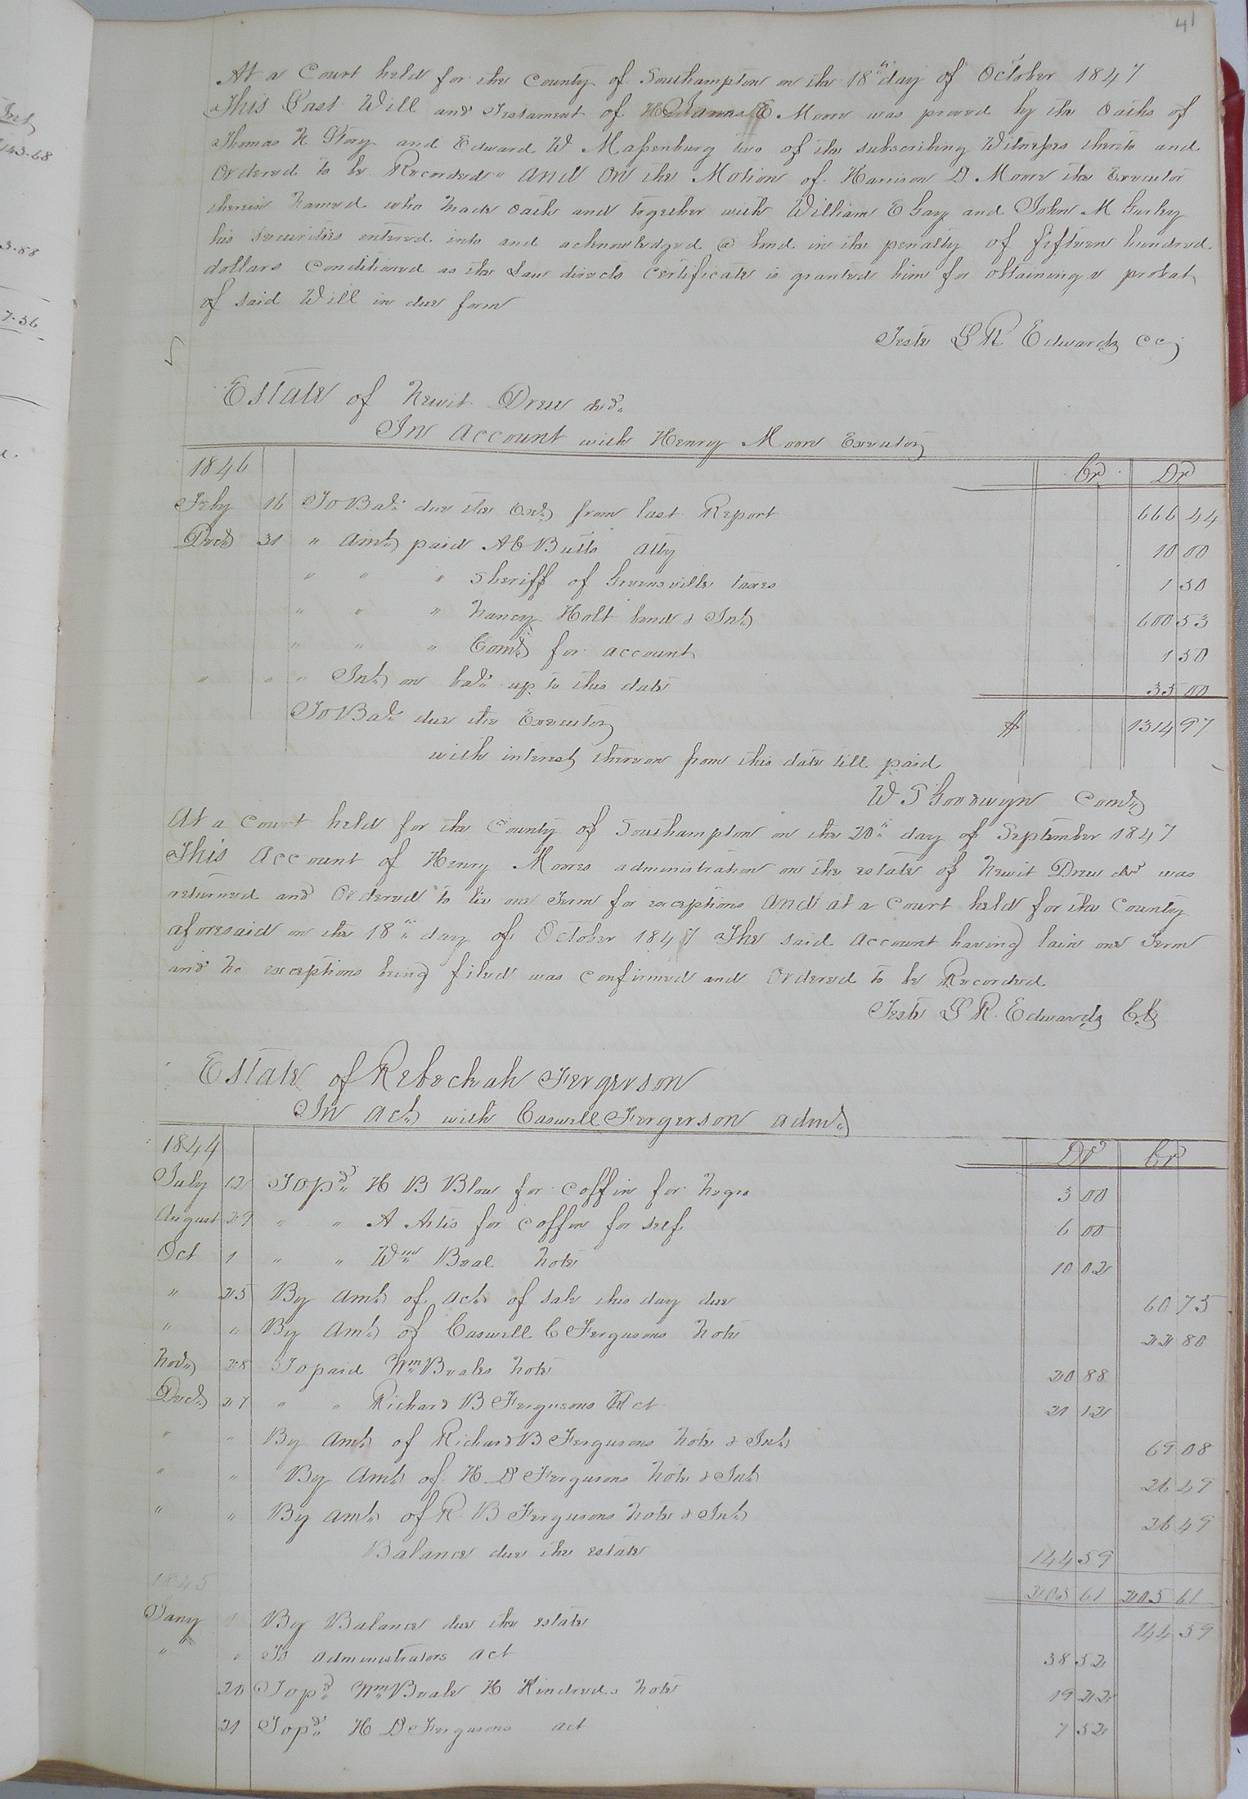 41
At a Court held for the County of Southampton on the 18th day of October 1847
This Last Will and Testament of E Moore was proved by the Oaths of
Thomas H Story and Edward W Massenburg two of the subscribing Witnesses thereto and
Ordered to be Recorded And On the Motion of Harrison D Moore the Executor
therein named who made oath and together with William E Gay and John M Gurley
his securities entered into and acknowledged a bond in the penalty of fifteen hundred
dollars conditioned as the Law directs certificate is granted him for obtaining a probat
of said Will in due form
Teste L R Edwards CC
Estate of Newit Drew decd.
In Account with Henry Moore Executor
1846 Cr Dr
Feby 16 To Bal. due the Exr. from last Report 666 44
Decr 31 " Amt. paid A C Butts atty 10 00
" " " Sheriff of Greensville taxes 1 50
" " " Nancy Holt bond & Int. 600 53
" " " Comr. for account 1 50
" " " Int. on bal. up to this date 35 00
To Bal. due the Executor $ 1314 97
with interest thereon from this date till paid
W S Goodwyn Comr.
At a Court held for the County of Southampton on the 20th day of September 1847
This Account of Henry Moores administration on the estate of Newit Drew decd was
returned and Ordered to lie one Term for exceptions And at a Court held for the County
aforesaid on the 18th day of October 1847 The said account having lain one Term
and no exceptions being filed was confirmed and Ordered to be Recorded
Teste L R. Edwards C.C
Estate of Rebeckah Fergerson
In Act. with Caswell Fergerson adm.
1844 Dr Cr
July 12 To pd. H B Blow for coffin for Negro 3 00
August 29 " " A Artis for coffin for self 6 00
Oct 1 " " Wm Beal note 10 02
" 25 By Amt. of act. of sale this day due 60 75
" " By Amt. of Caswell C Fergusons note 22 80
Novr. 28 To paid Wm Beales note 20 88
Decr. 27 " " Richard B Fergusons Act 21 12
" " By Amt. of Richard B Fergusons note & Int. 69 08
" " By Amt. of H D Fergusons note & Int. 26 49
" " By Amt. of R B Fergusons note & Int. 26 49
Balance due the estate 144 59
1845 205 61 205 61
Jany 1 By Balance due the estate 144 59
" " To administrators act 38 52
20 To pd. Wm Beale H Kindreds note 19 22
21 To pd. H D Fergusons act 7 52